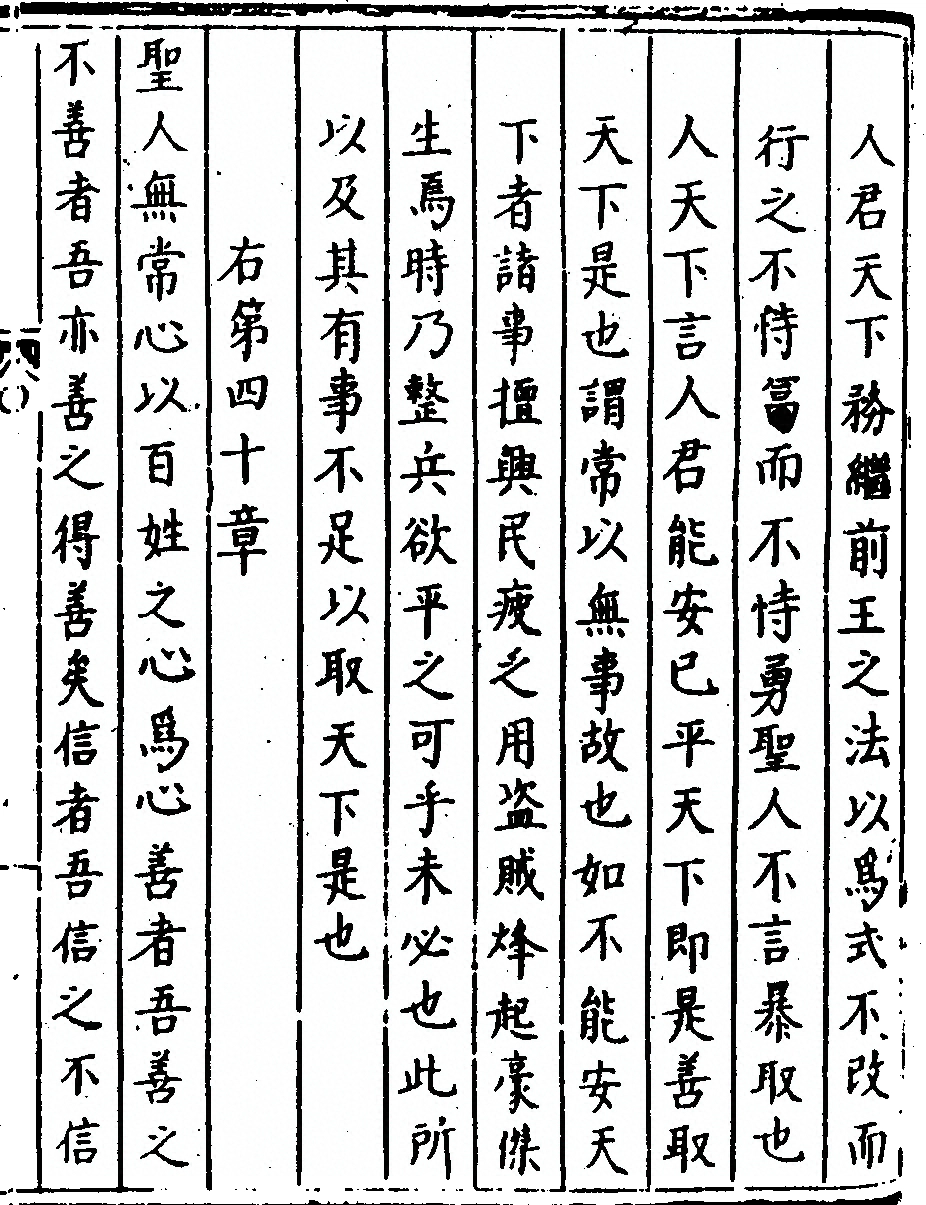 人君天下務繼前王之法以爲式不改而
行之不恃富而不恃勇聖人不言暴取也
人天下言人君能安已平天下即是善取
天下是也謂常以無事故也如不能安天
下者諸事擅興民疲乏用盜賊烽起豪傑
生焉時乃整兵欲平之可乎未必也此所
以及其有事不足以取天下是也
右第四十章
聖人無常心以百姓之心爲心善者吾善之
不善者吾亦善之得善矣信者吾信之不信